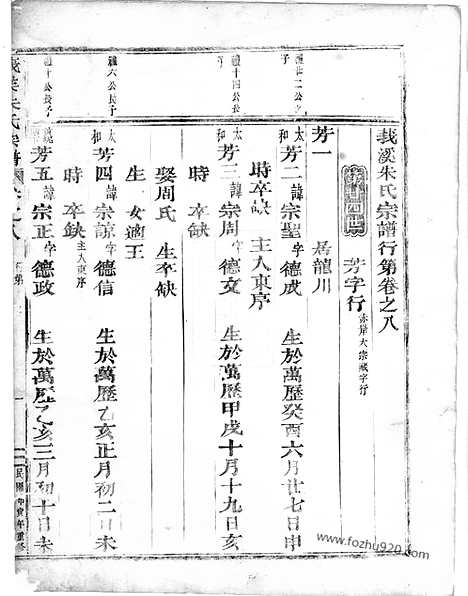 莪溪朱氏宗譜行第卷之八
芳字行
赤岸大宗藏字行
芳一 居龍川
芳二 諱宗聖 字德成 生於萬歷癸酉六月廿七日申
時卒缺 主入東序
太和 芳三 諱宗周 字德文 生於萬歷甲戌十月十九日亥
時 卒缺
娶周氏 生卒缺
生 女適王
太和 芳四 諱宗諒 字德信 生於萬歷乙亥正月初二日未
時 卒缺 主入東序
芳五 諱宗正 字德政 生於萬歷乙亥三月初十日未
禮十四公長子
禮六公長子
民國甲寅年重修
www.fozhu920.com